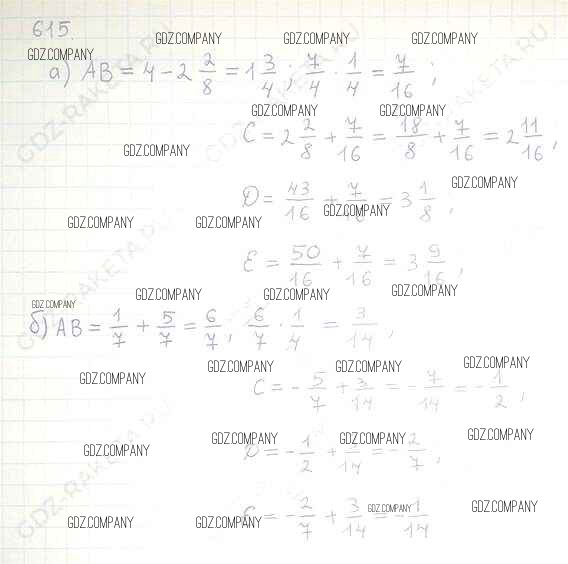 615.
GDZ.COMPANY GDZ.COMPANY GDZ.COMPANY
GDZ.COMPANY
а) AB = 4 - 2 2/8 = 1 3/4; 7/4 · 1/4 = 7/16;
GDZ.COMPANY GDZ.COMPANY
C = 2 2/8 + 7/16 = 18/8 + 7/16 = 2 11/16;
GDZ.COMPANY
GDZ.COMPANY
D = 43/16 + 7/ = 3 1/8;
GDZ.COMPANY
GDZ.COMPANY GDZ.COMPANY
E = 50/16 + 7/16 = 3 9/16;
GDZ.COMPANY GDZ.COMPANY GDZ.COMPANY
GDZ.COMPANY
б) AB = 1/7 + 5/7 = 6/7; 6/7 · 1/4 = 3/14;
GDZ.COMPANY GDZ.COMPANY GDZ.COMPANY
GDZ.COMPANY
C = - 5/7 + 3/14 = - 7/14 = - 1/2;
GDZ.COMPANY GDZ.COMPANY GDZ.COMPANY
D = - 1/2 + 3/14 = - 2/7;
GDZ.COMPANY GDZ.COMPANY
= - 2/7 + 3/14 = - 1/14
GDZ.COMPANY GDZ.COMPANY
GDZ-RAKETA.RU
GDZ-RAKETA.RU
GDZ-RAKETA.RU
GDZ-RAKETA.RU